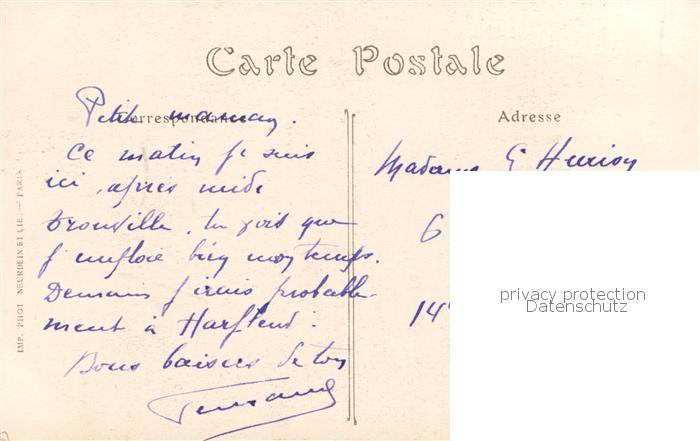 Carte Postale
Correspondance
Adresse
Petite maman.
Ce matin je suis
ici, après midi
Trouville, tu vois que
j'emploie bien mon temps.
Demain j'irais probable-
ment à Harfleur.
Bons baisers de ton
Fernand
Madame G Hurion
6
14
IMP. PHOT. NEURDEIN ET CIE. — PARIS
privacy protection
Datenschutz